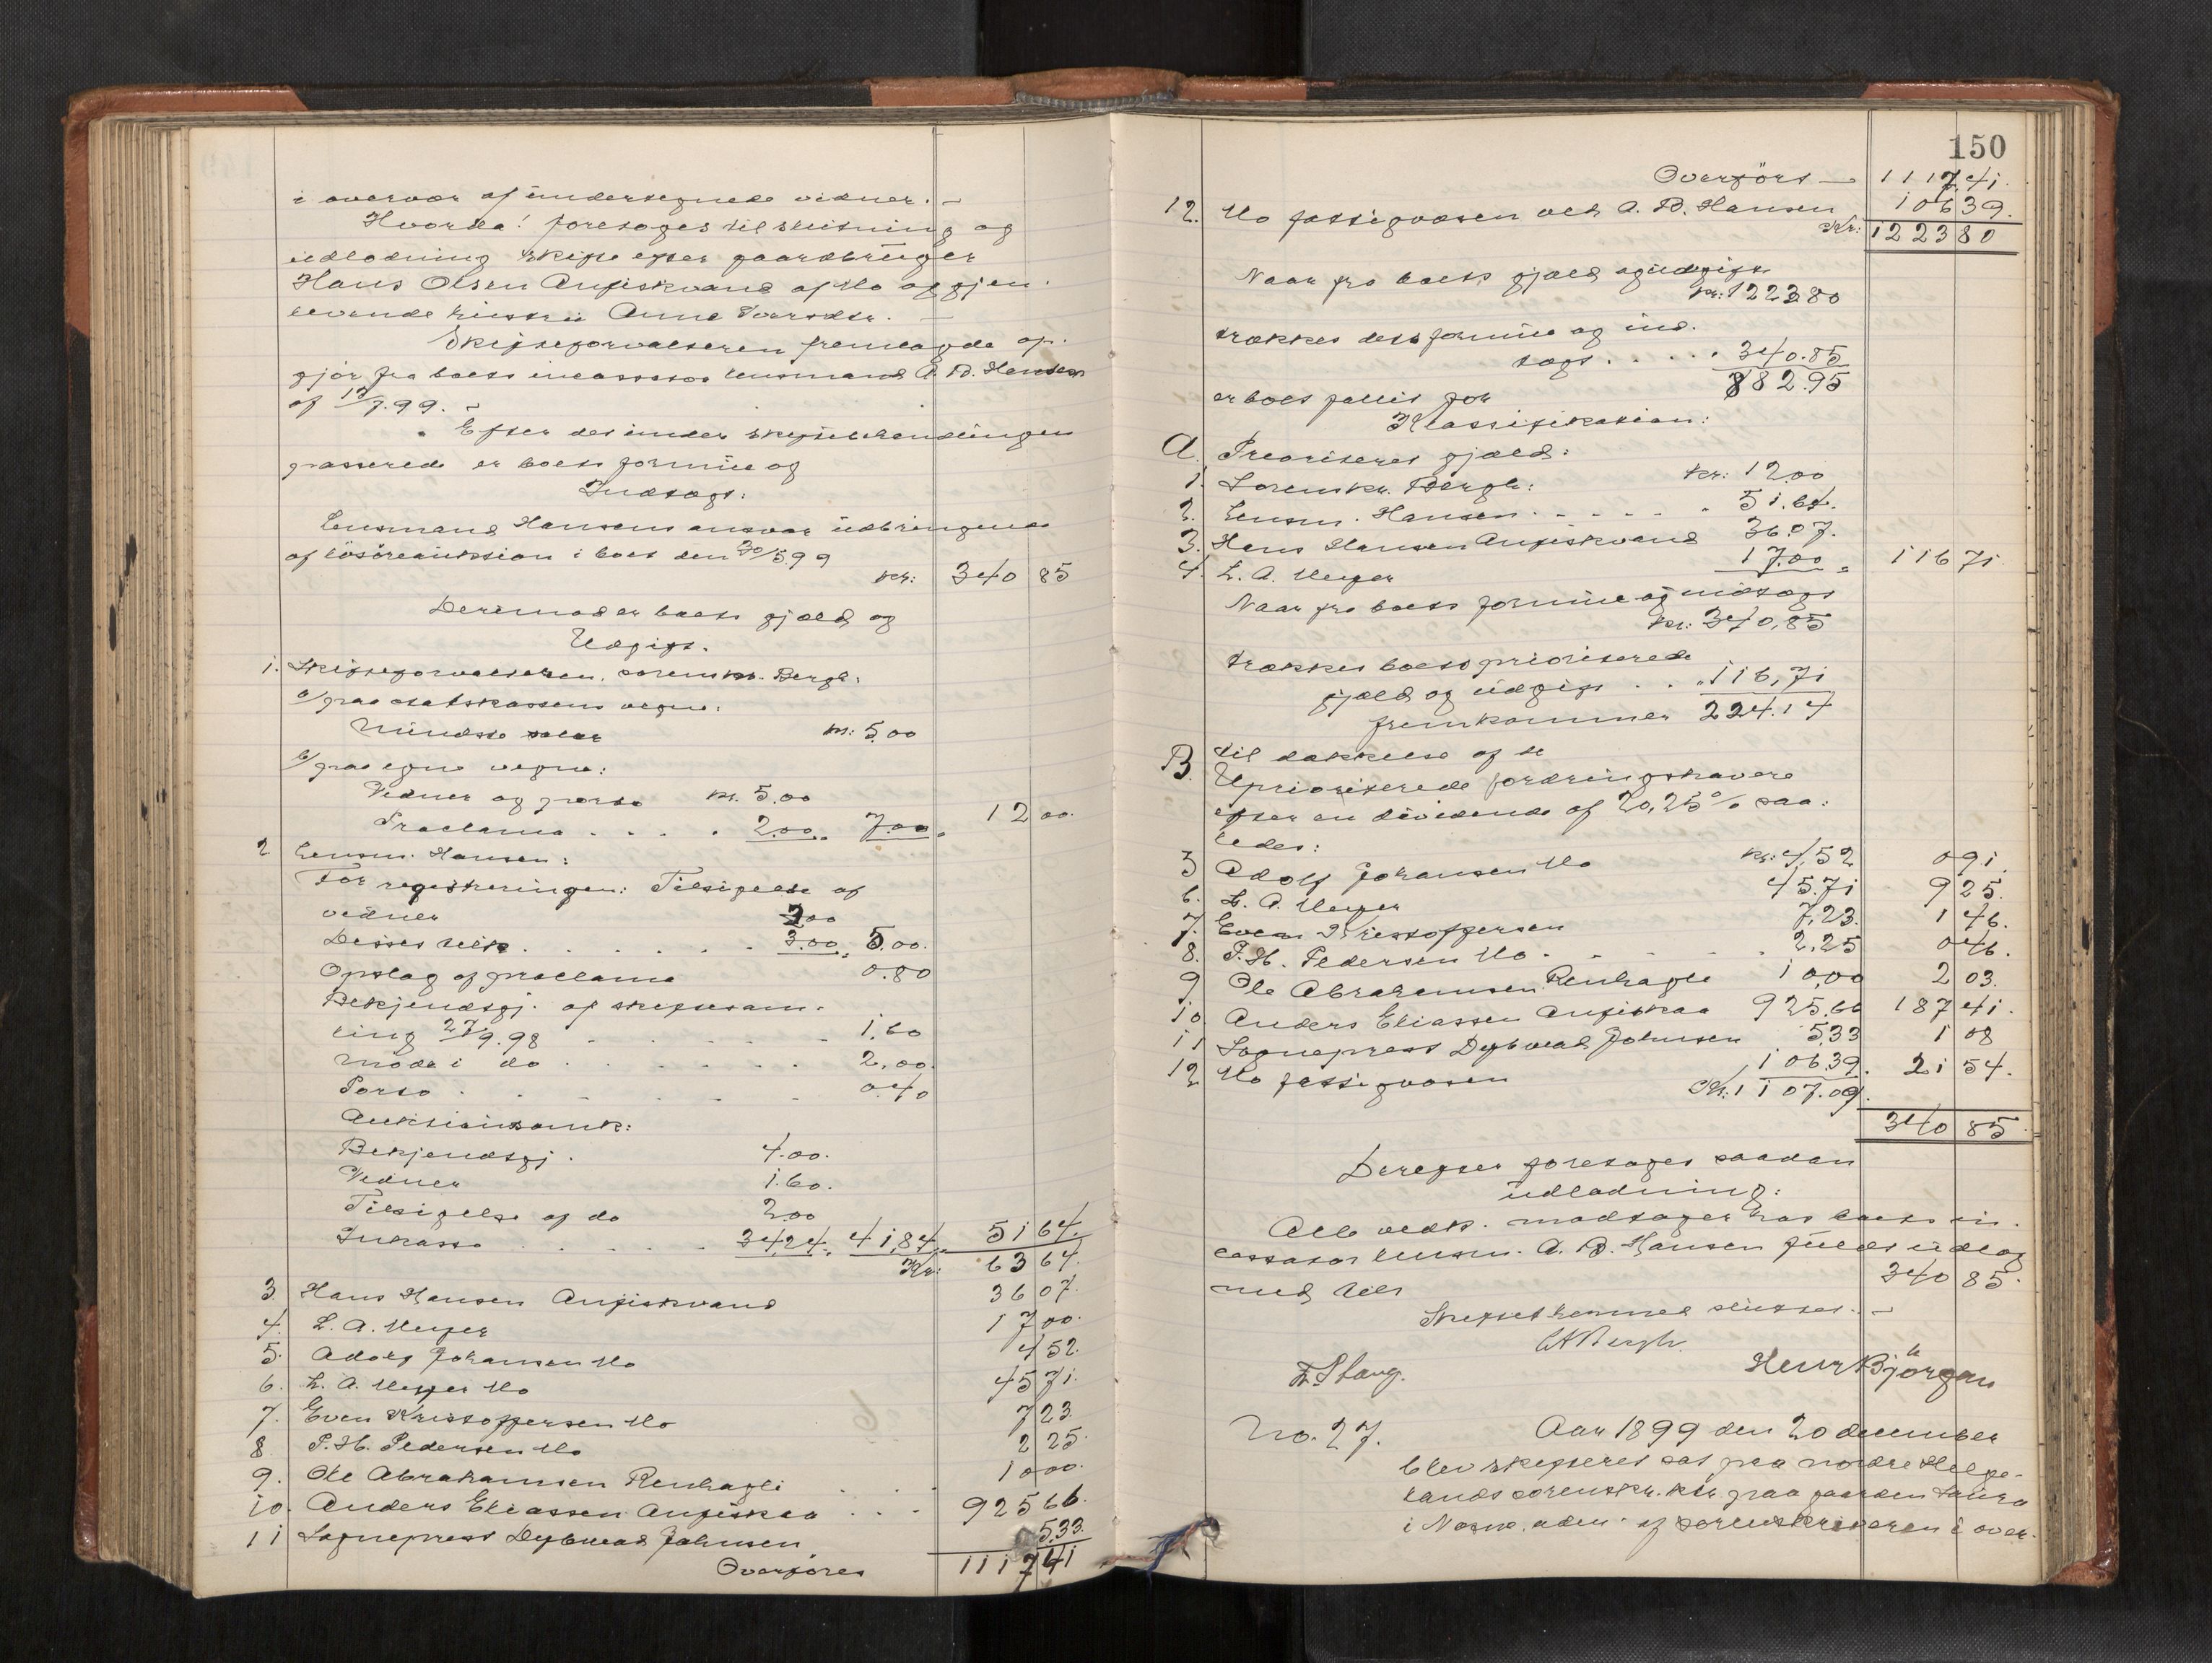 i overvær af undertegnede vidner. –
Hvorda! foretoges til slutning og
udlodning skifte efter gaardbruger
Hans Olsen Anfiskvand af Mo og gjen-
levende hustru Anne Iversdtr. –
Skifteforvalteren fremlagde op-
gjør fra boets incassator lensmand A. B. Hansen
af 12/7.99. –
Efter det under skiftebehandlingen
passerede er boets formue og
Indtægt:
Lensmand Hansens ansvar udbringende
af løsøreauktion i boet den 30/5.99
kr: 340 85
Derimod er boets gjæld og
Udgift.
1. Skifteforvalteren, sorenskr. Bergh:
a/ paa statskassens vegne:
Mindste salær kr: 5.00
b/ paa egne vegne:
Vidner og porto kr. 5.00
Proclama . . . . 2.00. 7.00. 12 00.
2 Lensm. Hansen:
For registreringen: Tilsigelse af
vidner 2.00
Disses tilk. . . . . . . . 3.00. 5.00.
Opslag af proclama 0.80
Bekjendtgj. af skiftesam-
ling 27/9.98 . . . . . 1.60
møde i do . . . . . . 2.00.
Porto . . . . . . 0.40
Auktionsomk:
Bekjendtgj. 4.00.
Vidner 1.60.
Tilsigelse af do 2.00
Inkasso . . . . . 34,24. 41,84. 51 64.
Kr: 63 64.
3. Hans Hansen Anfiskvand 36 07.
4. L. A. Meyer 17 00.
5. Adolf Johansen Mo 4 52.
6. L. A. Meyer Mo 45 71.
7. Even Kristoffersen Mo 7 23.
8 P. H. Pedersen Mo 2 25.
9. Ole Abrahamsen Renhagli . . . 10 00.
10. Anders Eliassen Anfiskaa . . . 925 66.
11 Sognepræst Dybwad Johnsen 5.33.
Overføres 1117 41
150
Overført — 1117,41.
12. Mo fattigvæsen ved A. B. Hansen 106 39.
Kr: 1223 80
Naar fra boets gjæld og udgift
kr: 1223.80
trækkes dets formue og ind-
tægt . . . . . 340.85
er boet fallit for 882.95
Klassifikation:
A. Prioriteret gjæld:
1. Sorenskr. Bergh: kr: 12.00
2. Lensm. Hansen . . . . . 51.64.
3. Hans Hansen Anfiskvand 36.07.
4. L. A. Meyer 17.00 116 71.
Naar fra boets formue og indtægt
kr: 340,85
trækkes boets prioriterede
gjæld og udgift . . . 116,71
fremkommer 224.14
til dækkelse af de
B. Uprioriterede fordringshavere
efter en dividende af 20,25 % saa-
ledes:
5 Adolf Johansen Mo kr: 4,52 0 91.
6. L. A. Meyer 45.71 9 25.
7. Even Kristoffersen 7,23. 1 46.
8. P. H. Pedersen Mo . . . . . 2.25 0 46.
9 Ole Abrahamsen Renhagli 10,00 2 03.
10. Anders Eliassen Anfiskaa 925.66 187 41.
11 Sognepræst Dybwad Johnsen 5,33 1 08
12 Mo fattigvæsen 106.39. 21 54.
Kr: 1107.09.
340 85.
Derefter foretoges saadan
udlodning:
Alle vedk. modtager hos boets in-
cassator lensm. A. B. Hansen fuldt udlæg
med tils 340 85.
Skiftet hermed sluttet. –
CABergh.
F. Stang. Henr Bjørgan
No. 27. Aar 1899 den 20 december
blev skifteret sat paa nordre Helge-
lands sorenskr. ktr. paa gaarden Laura
i Nesna, aden. af sorenskriveren i over-